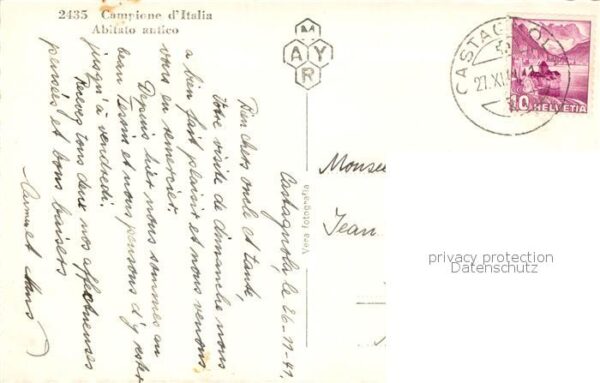 2435 Campione d'Italia
Abitato antico
MAYR
CASTAGNOLA
27.XI.41
10 HELVETIA
Castagnola, le 26-11-41.
Bien chers oncle et tante,
Votre visite de dimanche nous
a bien fait plaisir et nous venons
vous en remercier.
Depuis hier nous sommes au
beau Tessin et nous pensons d'y rester
jusqu'à vendredi.
Recevez tous deux nos affectueuses
pensées et bons baisers
Vera fotografia
Jean
privacy protection
Datenschutz